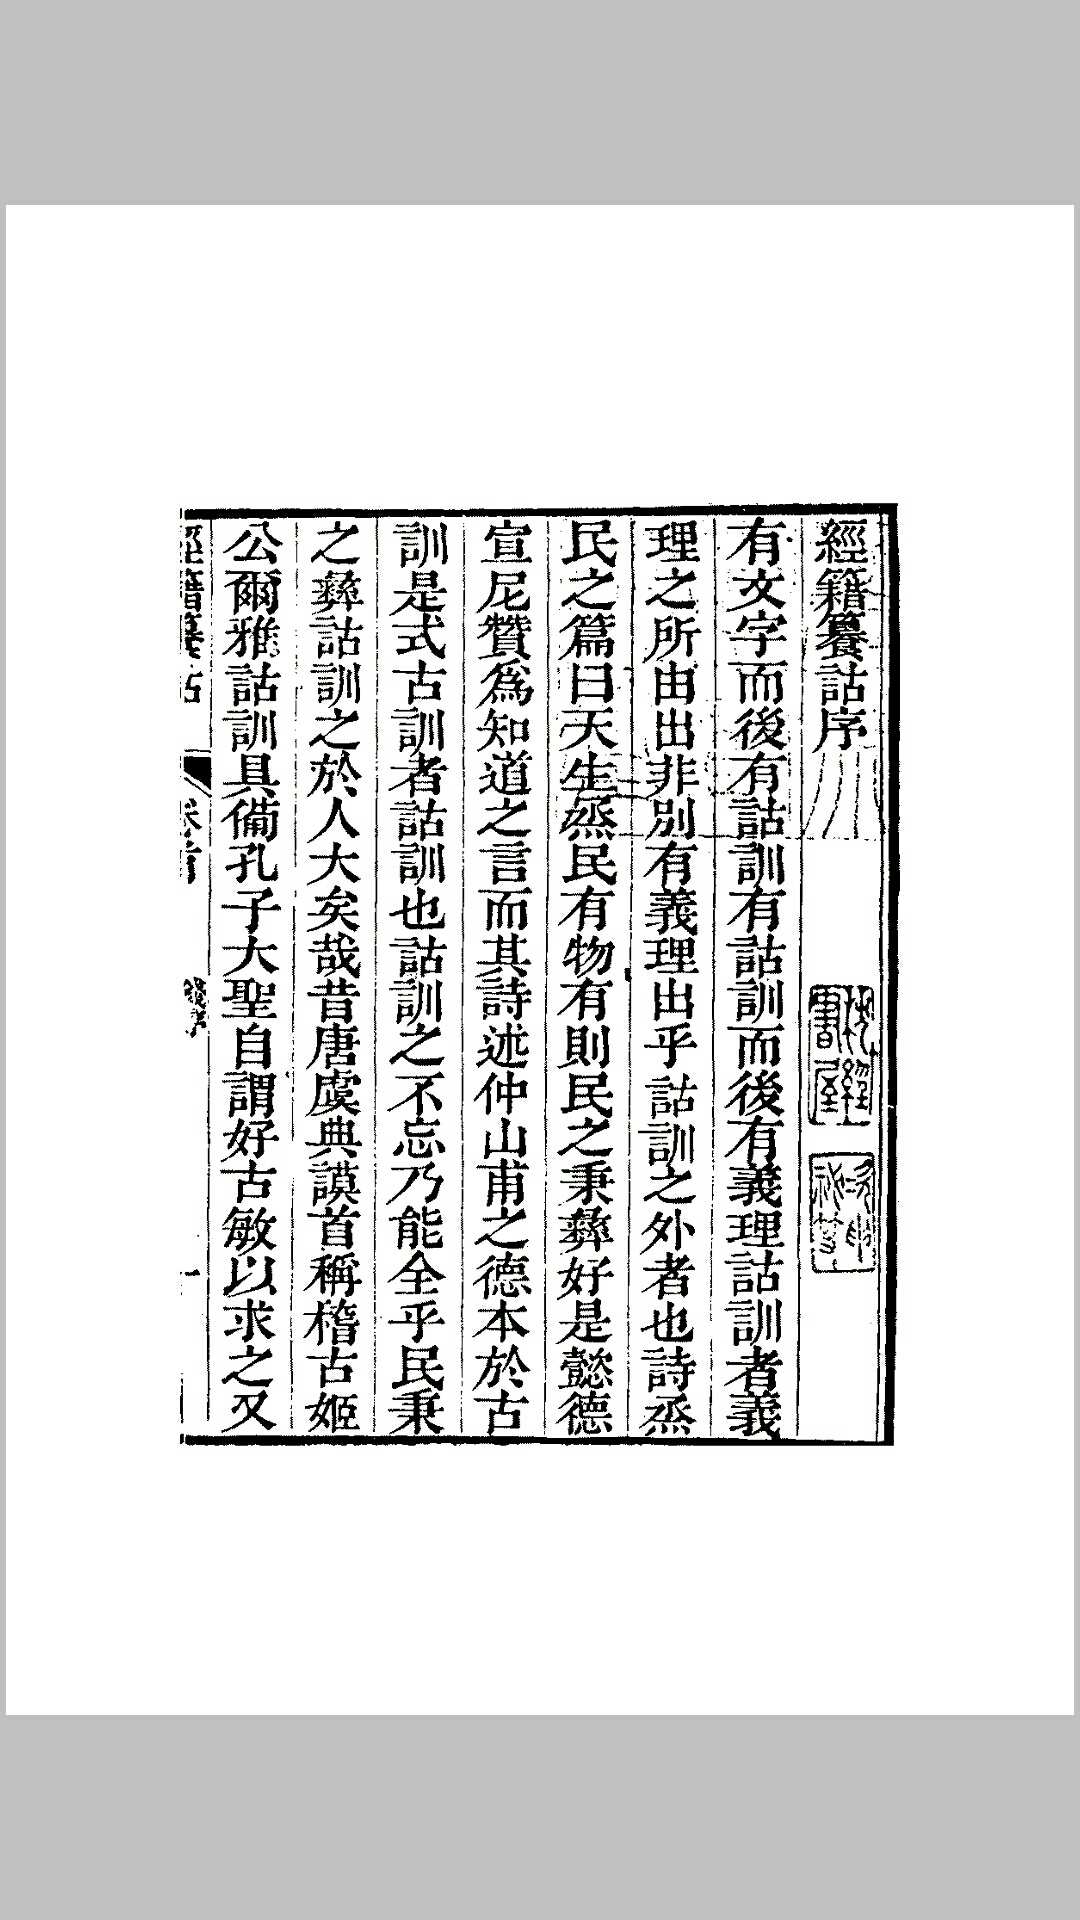 經籍籑詁序
有文字而後有詁訓有詁訓而後有義理詁訓者義
理之所由出非別有義理出乎詁訓之外者也詩烝
民之篇曰天生烝民有物有則民之秉彝好是懿德
宣尼贊爲知道之言而其詩述仲山甫之德本於古
訓是式古訓者詁訓也詁訓之不忘乃能全乎民秉
之彝詁訓之於人大矣哉昔唐虞典謨首稱稽古姬
公爾雅詁訓具備孔子大聖自謂好古敏以求之又
經籍籑詁 卷首 錢序 一